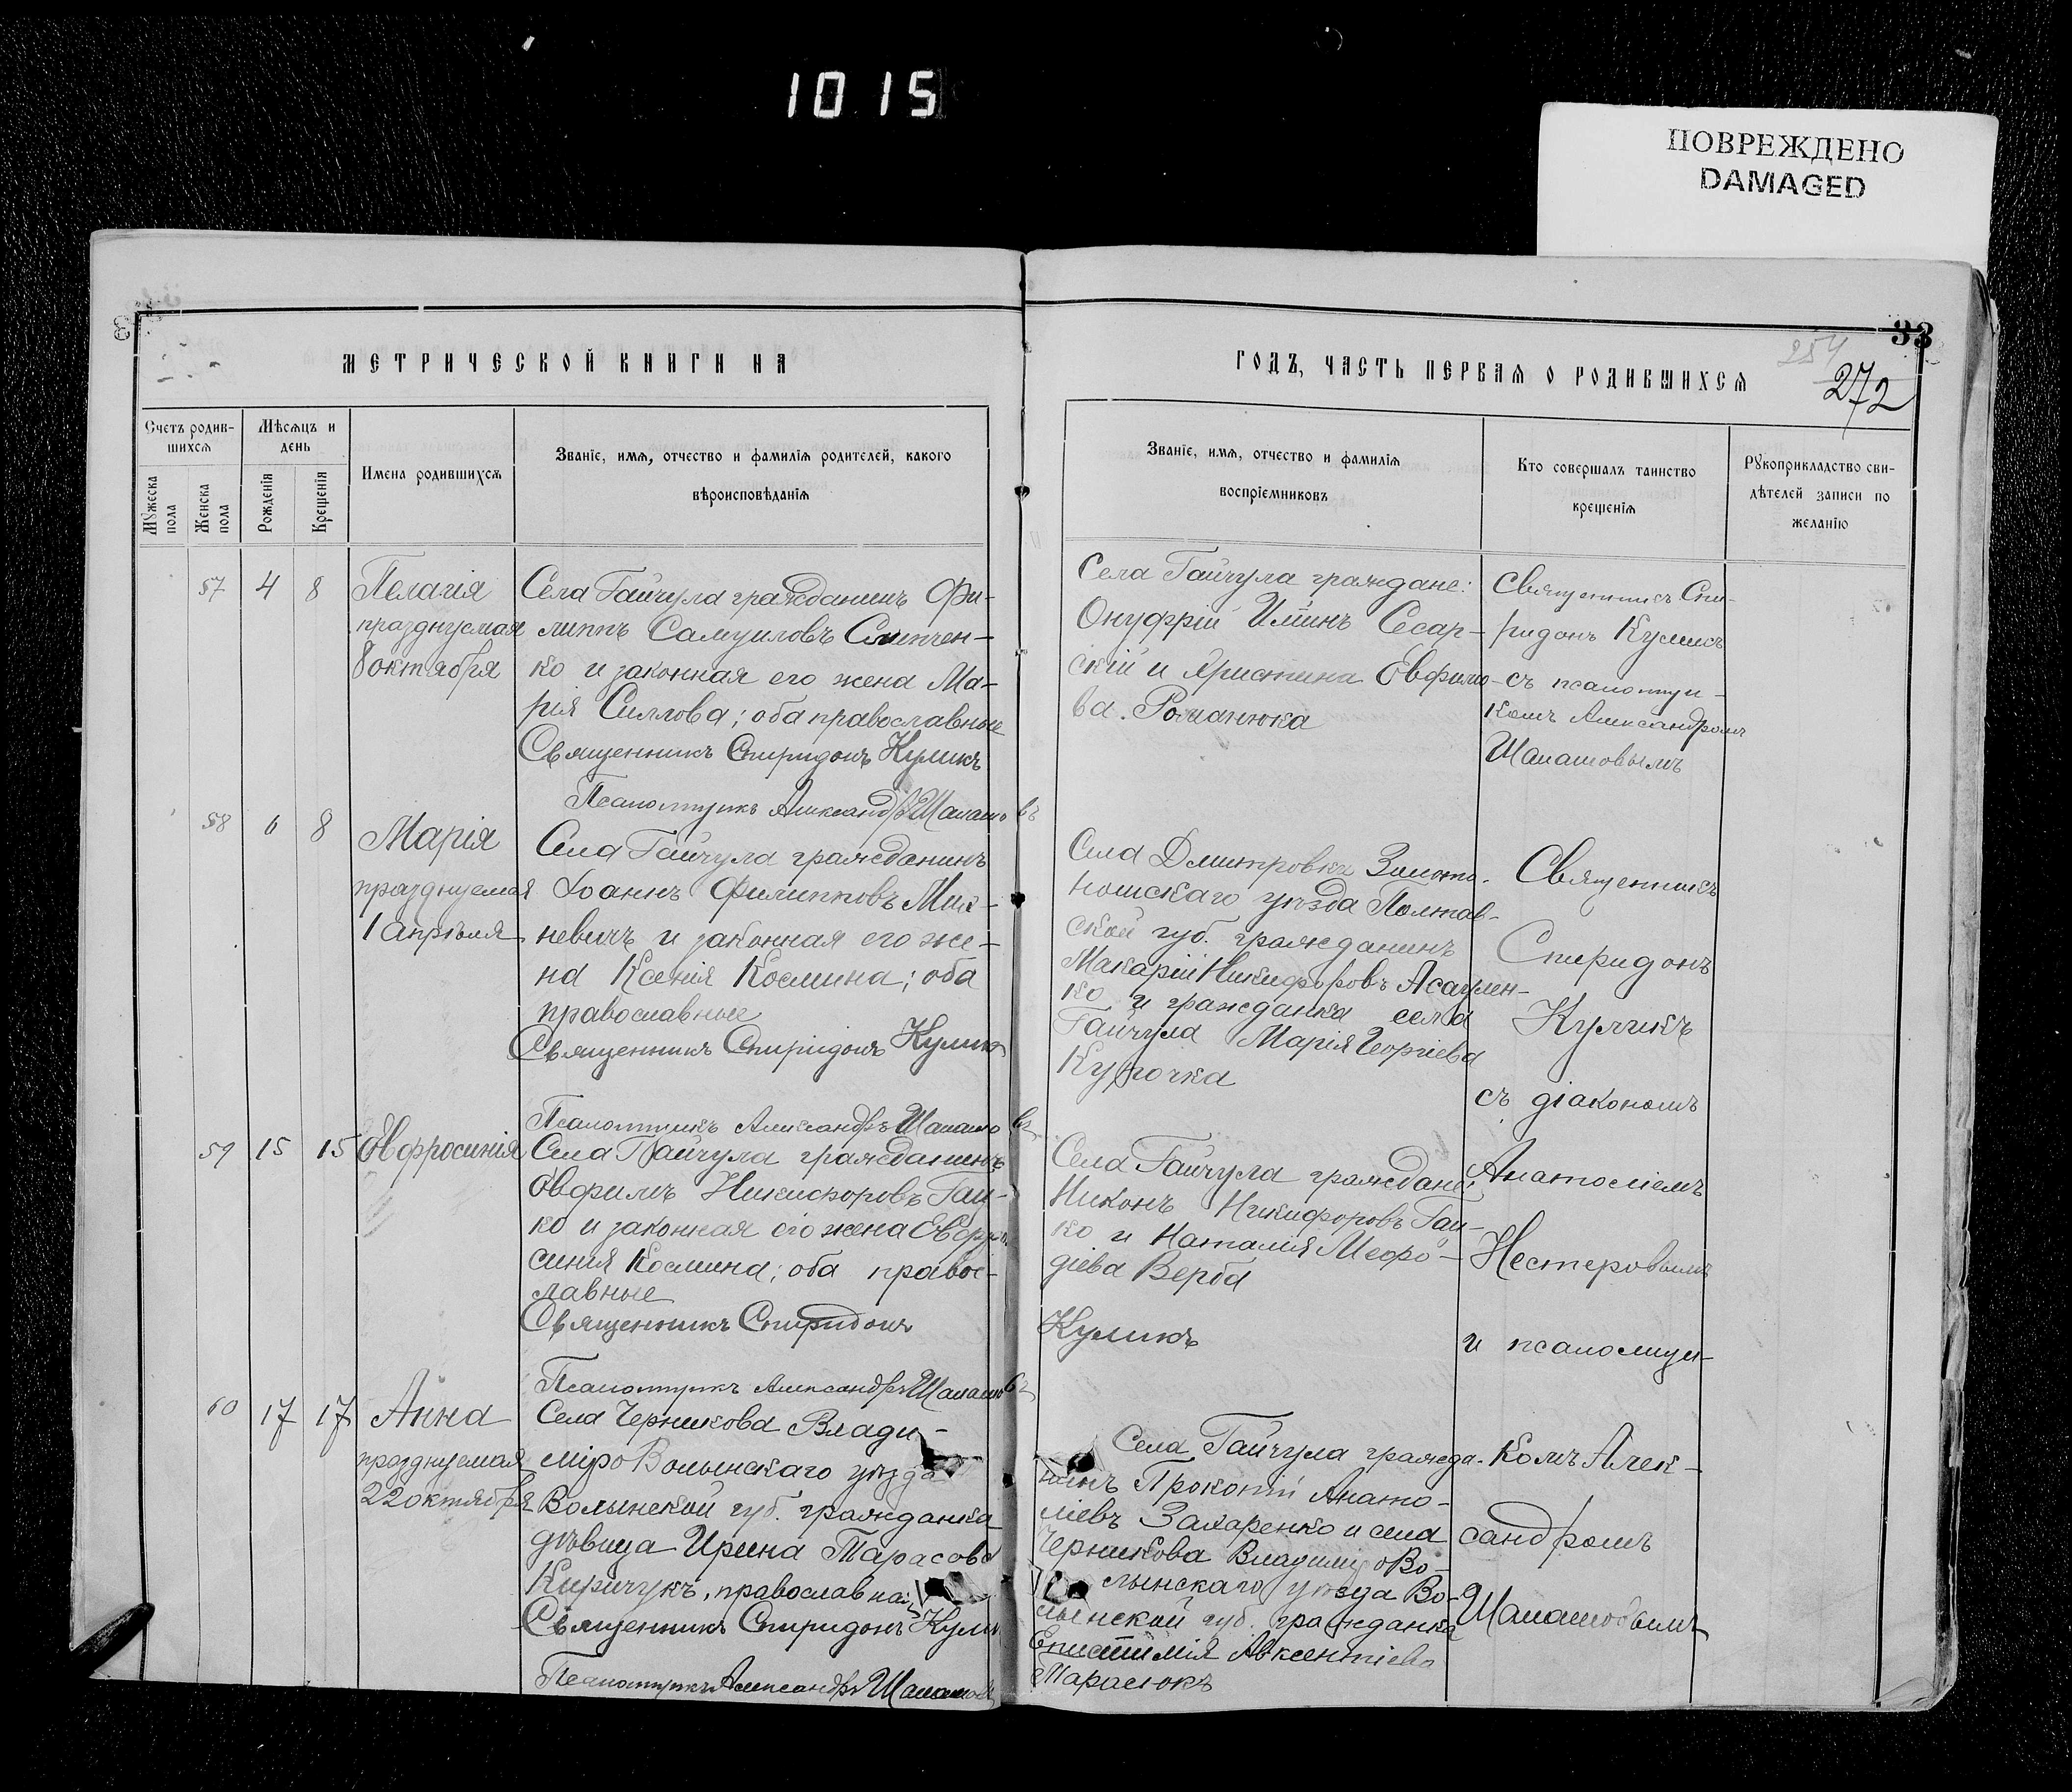 1015
ПОВРЕЖДЕНО
DAMAGED
33
254
272
МЕТРИЧЕСКОЙ КНИГИ НА
ГОДЪ, ЧАСТЬ ПЕРВАѦ О РОДИВШИХСѦ
Счетъ родив-
шихсѧ
Мꙋжеска
пола
Женска
пола
Мѣсѧцъ и
день
Рожденїѧ
Крещенїѧ
Имена родившихсѧ
Званїе, имѧ, отчество и фамилїѧ родителей, какого
вѣроисповѣданїѧ
Званїе, имѧ, отчество и фамилїѧ
воспрїемниковъ
Кто совершалъ таинство
крещенїѧ
Рꙋкоприкладство сви-
дѣтелей записи по
желанїю
57
4
8
Пелагія
празднуемая
8 октября
Села Гайчула гражданинъ Фи-
липпъ Самуиловъ Слипчен-
ко и законная его жена Ма-
рія Силлова; оба православные
Священникъ Спиридонъ Куликъ
Псаломщикъ Александръ
Села Гайчула граждане:
Онуфрій Сесар-
скій и Христина Евфимо-
ва Романюка
Священникъ Спи-
ридонъ Куликъ
съ псаломщи-
комъ Александромъ
58
6
8
Марія
празднуемая
1 апрѣля
Села Гайчула гражданинъ
Іоаннъ Филипповъ Мих-
невичъ и законная его же-
на Ксенія Космина; оба
православные
Священникъ Спиридонъ Куликъ
Псаломщикъ Александръ
Села Дмитровки Золото-
ношскаго уѣзда Полтав-
ской губ. гражданинъ
Макарій Никифоровъ
ко и гражданка села
Гайчула Марія Георгіева
Курочка
Священникъ
Спиридонъ
Куликъ
съ діакономъ
59
15
15
Евфросинія
Села Гайчула гражданинъ
Евфимъ Никифоровъ Гай-
ко и законная его жена Евфро-
синія Космина; оба правос-
лавные
Священникъ Спиридонъ
Куликъ
Псаломщикъ Александръ
Села Гайчула граждане:
Никонъ Никифоровъ Гай-
ко и Наталія Меѳо-
діева Верба
Анатоліемъ
Нестеровымъ
и псаломщи-
60
17
17
Анна
празднуемая
22 октября
Села Черникова Влади-
міро Волынскаго уѣзда
Волынской губ. гражданка
дѣвица Ирина Тарасова
Киричукъ, православная
Священникъ Спиридонъ Куликъ
Псаломщикъ Александръ
Села Гайчула гражда-
нинъ Прокопій Анато-
ліевъ Захаренко и села
Черникова Владиміро Во-
лынскаго уѣзда Во-
лынской губ. гражданка
Епистимія Авксентіева
Тарасюкъ
комъ Алек-
сандромъ